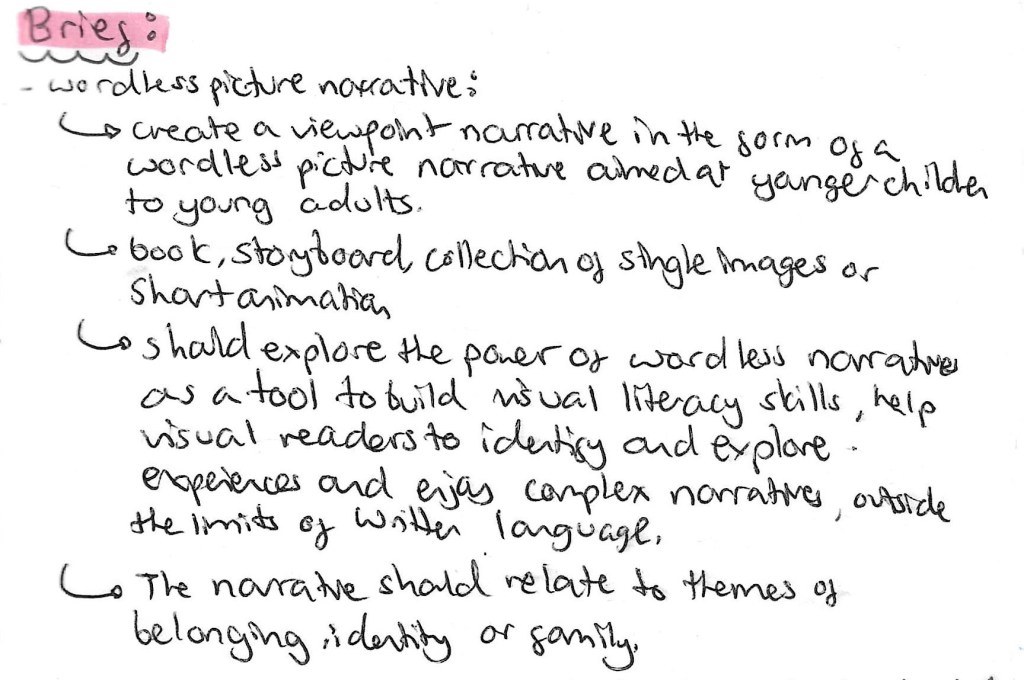 Brief:
- wordless picture narrative:
↳ create a viewpoint narrative in the form of a
wordless picture narrative aimed at younger childen
to young adults.
↳ book, storyboard, collection of single images or
short animation
↳ should explore the power of wordless narratives
as a tool to build visual literacy skills, help
visual readers to identify and explore
experiences and enjoy complex narratives, outside
the limits of written language.
↳ The narrative should relate to themes of
belonging, identity or family.